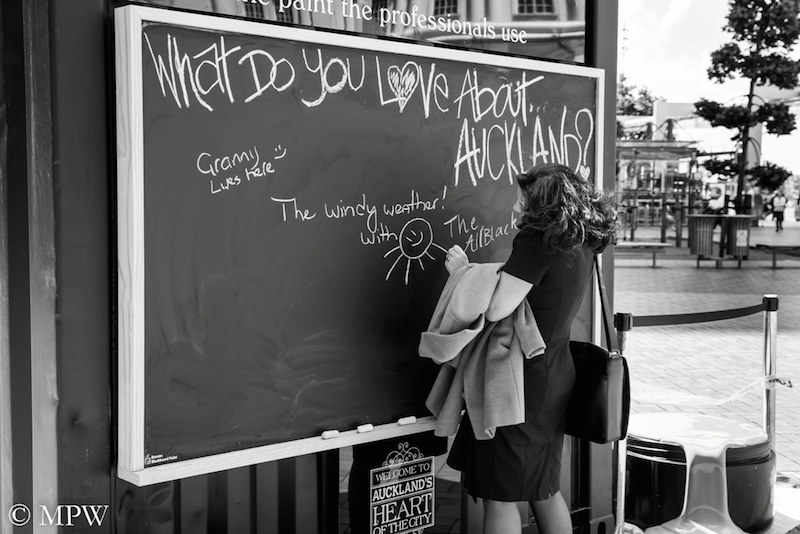 the paint the professionals use
What Do you Love About.
AUCKLAND?
Granny
Lives here
The windy weather!
with
The
All Black
WELCOME TO
AUCKLAND'S
HEART
OF THE CITY
© MPW